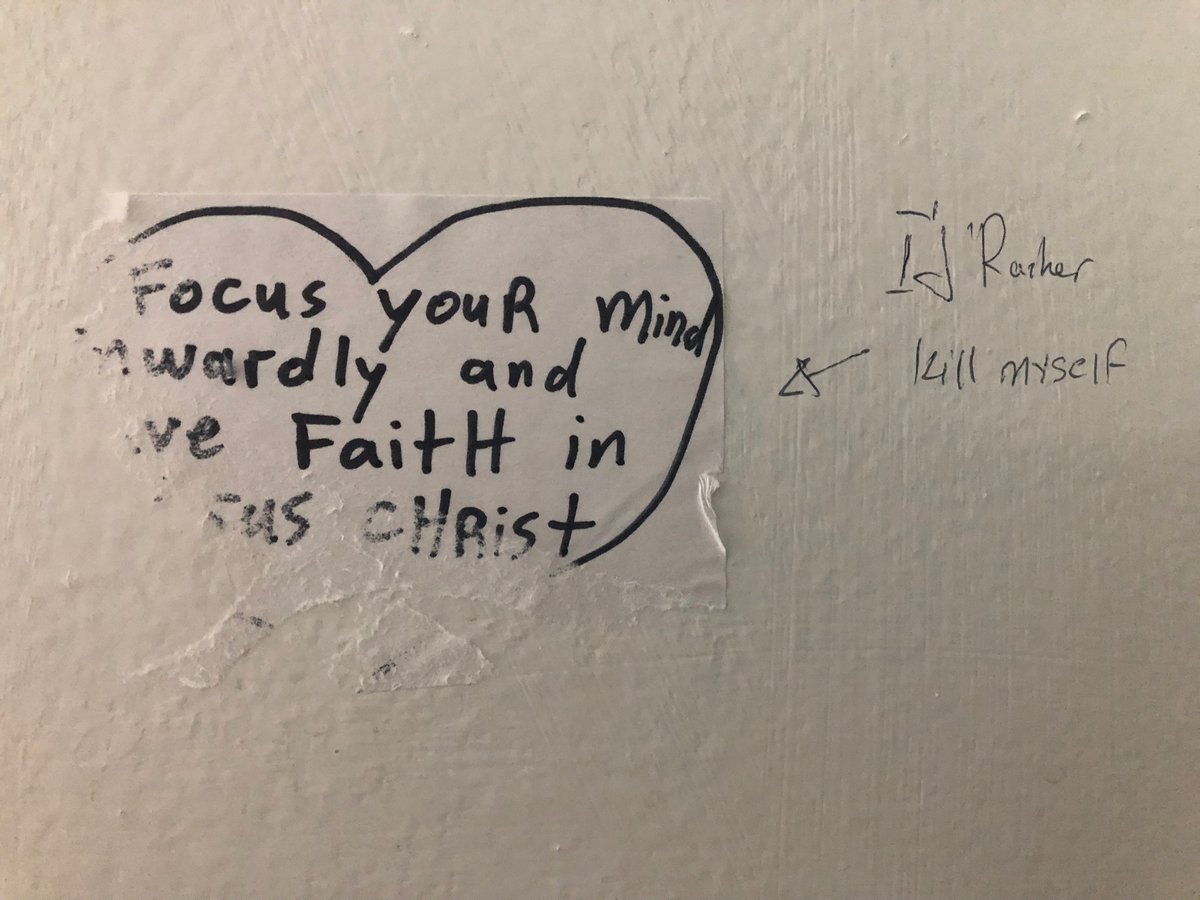 Focus youR mind
inwardly and
ve FaitH in
sus CHRist
I'd Rather
kill myself